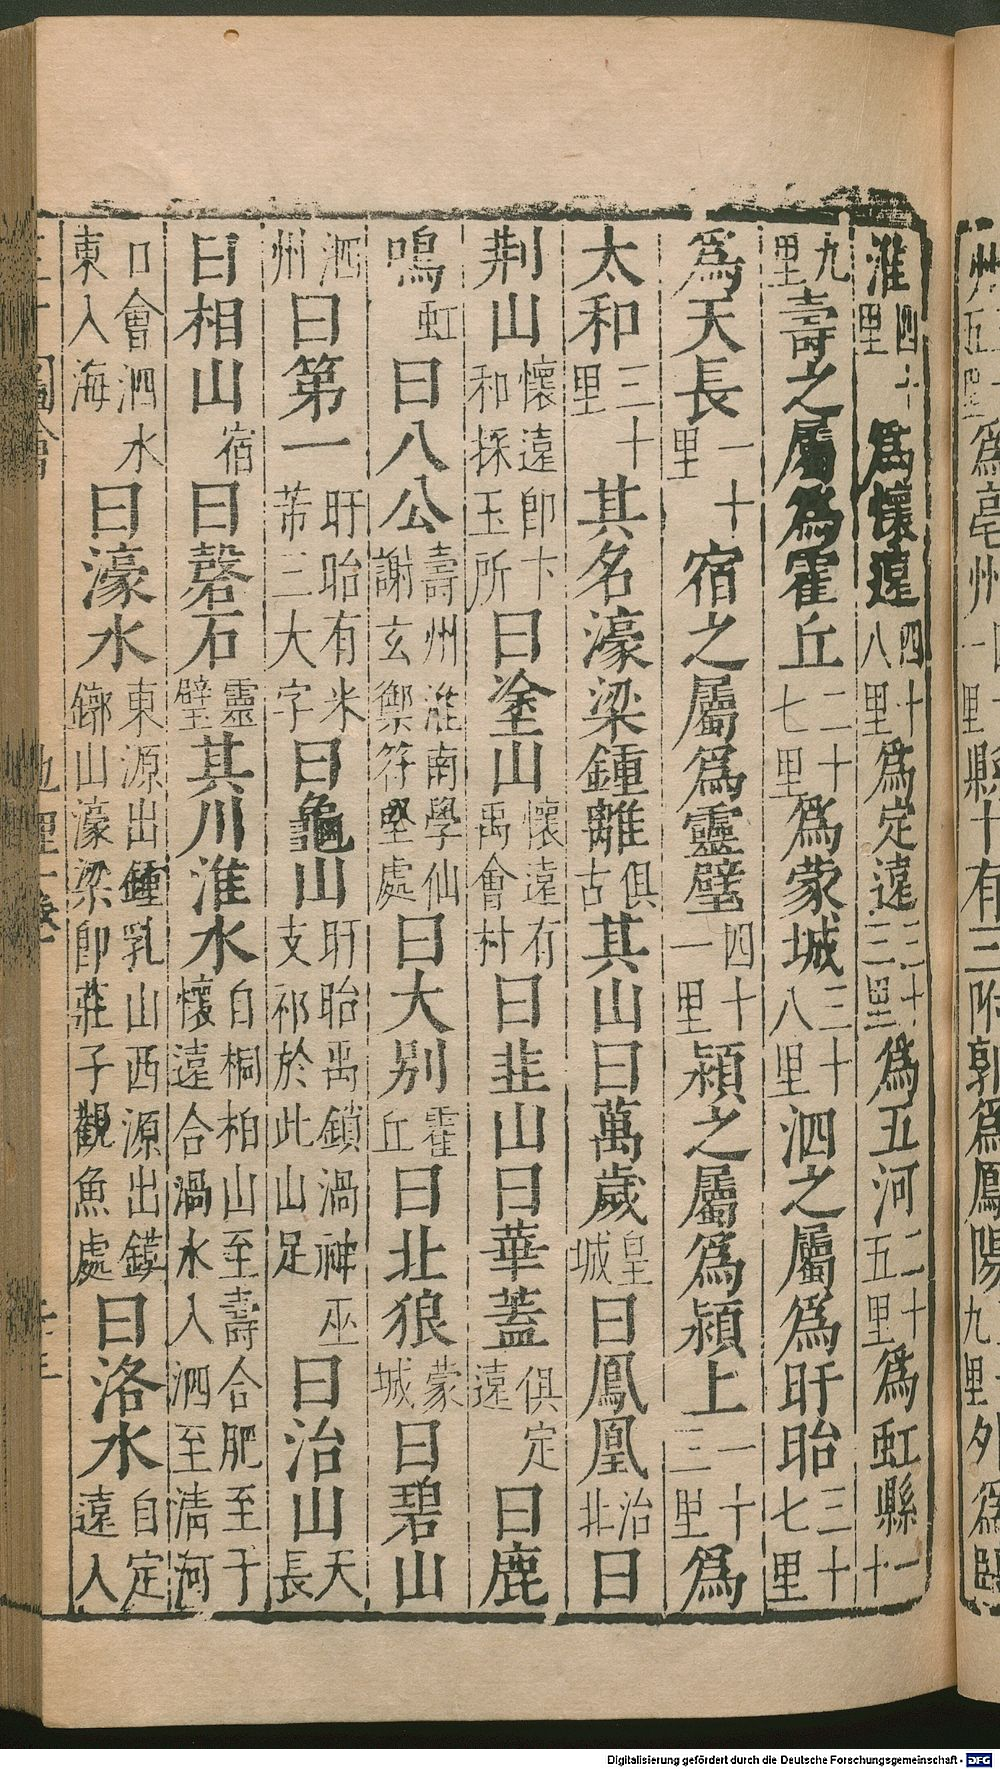 淮四十里為懷遠四十八里為定遠三十三里為五河二十五里為虹縣一十
九里壽之屬為霍丘二十七里為蒙城三十八里泗之屬為盱眙三十七里
為天長一十里宿之屬為靈璧四十一里潁之屬為潁上一十三里為
太和三十里其名濠梁鍾離俱古其山曰萬歲皇城曰鳳凰治北曰
荆山懷遠卽卞和採玉所曰塗山懷遠有禹會村曰韭山曰華蓋俱定遠曰鹿
鳴虹曰八公壽州淮南學仙謝玄禦符堅處曰大别霍丘曰北狼蒙城曰碧山
泗州曰第一盱眙有米芾三大字曰龜山盱眙禹鎖渦神巫支祁於此山足曰治山天長
曰相山宿曰磬石靈璧其川淮水自桐柏山至壽合肥至于懷遠合渦水入泗至淸河
口會泗水東入海曰濠水東源出鍾乳山西源出鏌鎁山濠梁卽莊子觀魚處曰洛水自定遠入
Digitalisierung gefördert durch die Deutsche Forschungsgemeinschaft - DFG